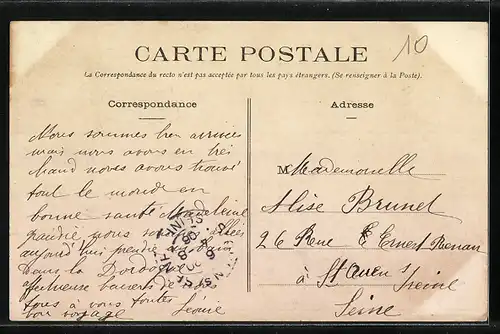 10
CARTE POSTALE
La Correspondance du recto n'est pas acceptée par tous les pays étrangers. (Se renseigner à la Poste).
Correspondance
Adresse
Nous sommes bien arrivées
mais nous avons eu très
chaud nous avons trouvé
tout le monde en
bonne santé Madeleine
grandie nous sommes allées
aujourd'hui prendre un bain
dans la Dordogne
affectueux baisers de
tous à vous toutes
bon voyage Léonie
Mademoiselle
Alise Brunet
26 Rue E Ernest Renan
à St Ouen s/ Seine
Seine